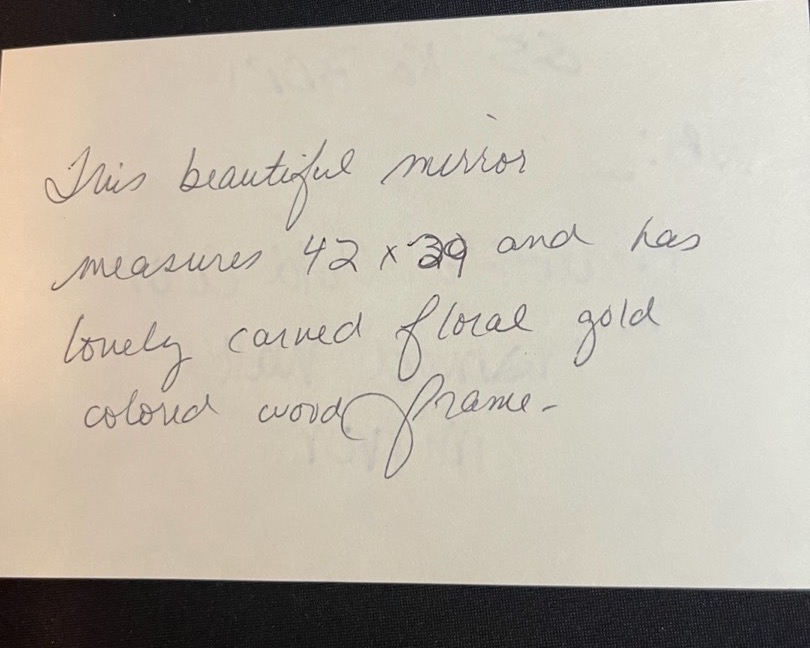 This beautiful mirror
measures 42 x 39 and has
lovely carved floral gold
colored wood frame-